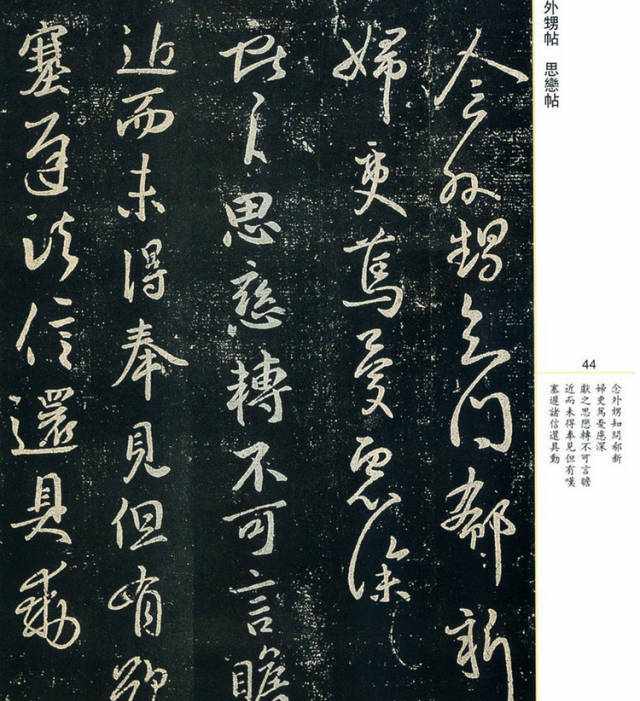 外甥帖　思戀帖
44
念外甥知問郗新
婦更篤憂慮深
獻之思戀轉不可言瞻
近而未得奉見但有嘆
塞遲諸信還具動
念外甥知問郗新
婦更篤憂慮深
獻之思戀轉不可言瞻
近而未得奉見但有歎
塞遲諸信還具動